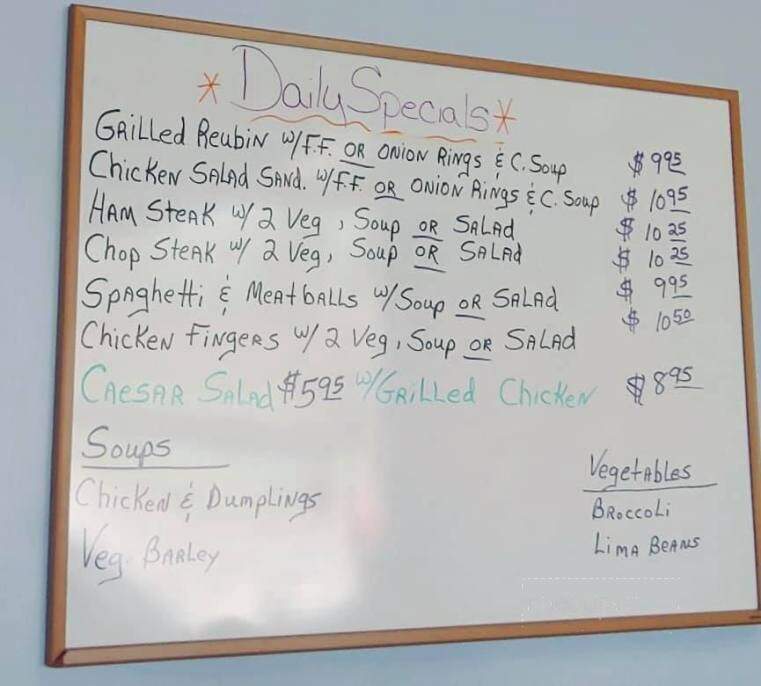 * Daily Specials *
Grilled Reubin w/F.F. or Onion Rings & C. Soup $ 9 95
Chicken Salad Sand. w/F.F. or Onion Rings & C. Soup $ 10 95
Ham Steak w/ 2 Veg, Soup or Salad $ 10 25
Chop Steak w/ 2 Veg, Soup or Salad $ 10 25
Spaghetti & Meatballs w/Soup or Salad $ 9 95
Chicken Fingers w/ 2 Veg, Soup or Salad $ 10 50
Caesar Salad $5 95 w/Grilled Chicken $ 8 95
Soups
Chicken & Dumplings
Veg. Barley
Vegetables
Broccoli
Lima Beans